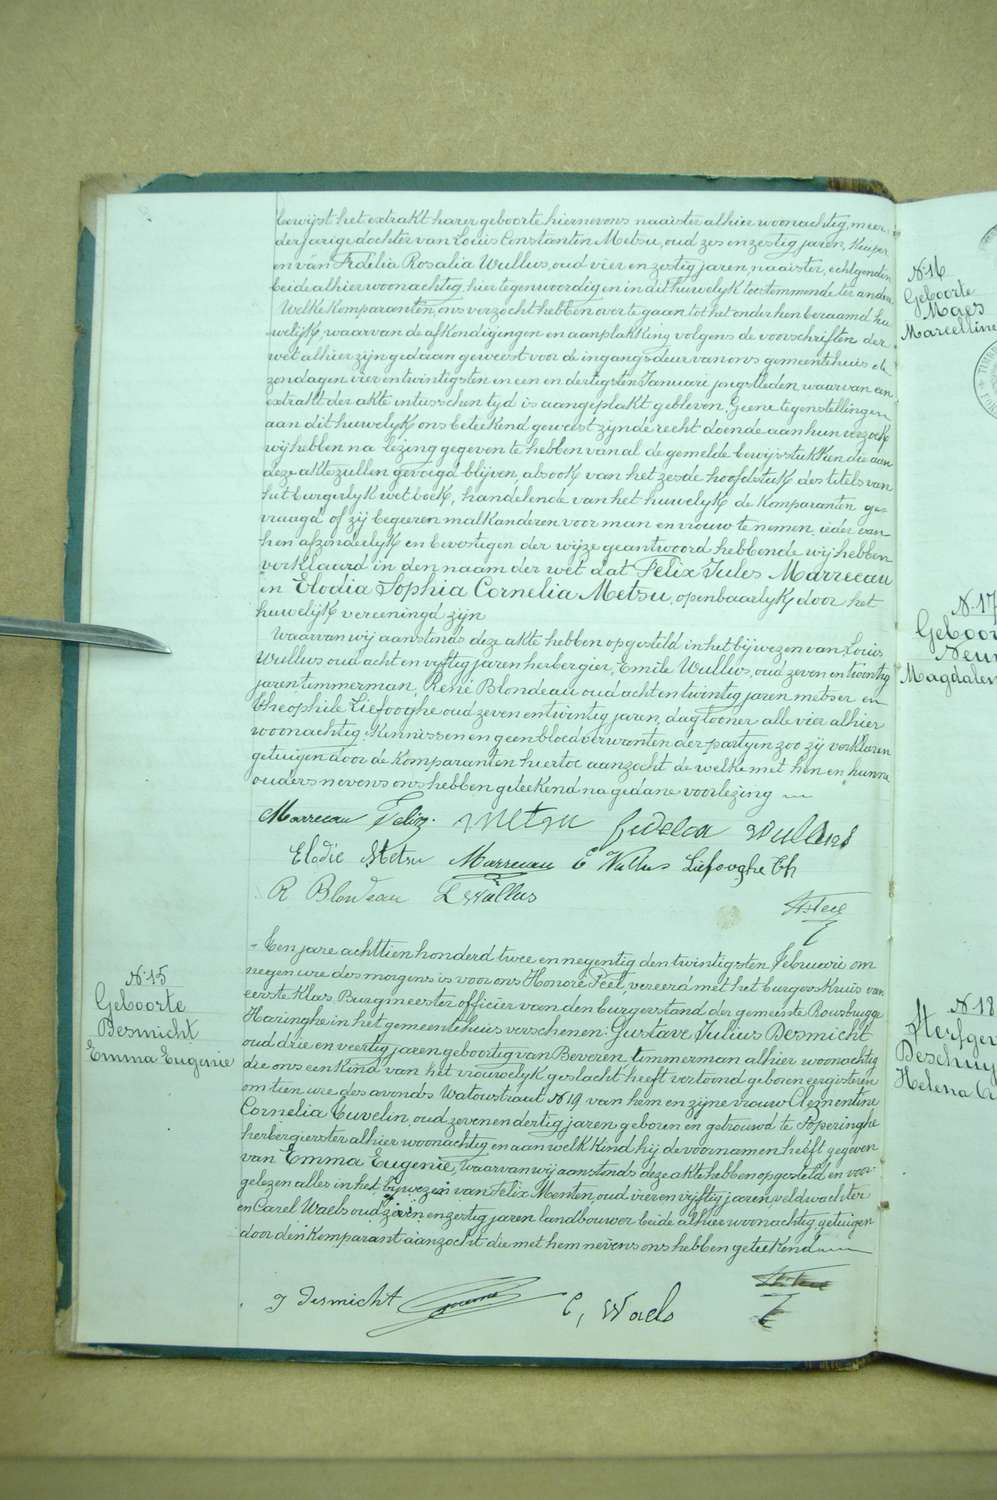 bewijst het extrakt harer geboorte hiernevens naaister alhier woonachtig, meer-
derjarige dochter van Louis Constanten Metsu, oud zes en zestig jaren, Kuiper
en van Fidelia Rosalia Wullus, oud vier en zestig jaren, naaister, echtgenoten
beide alhier woonachtig, hier tegenwoordig en in dit huwelijk toestemmende ter andere
Welke Komparanten ons verzocht hebben over te gaan tot het onder hen beraamd hu
welijk, waarvan de afkondigingen en aanplakking volgens de voorschriften der
wet alhier zijn gedaan geweest voor de ingangsdeur van ons gemeentehuis de
zondagen vier en twintigsten en een en dertigsten Januari jongstleden, waarvan een
extrakt der akte intusschen tijd is aangeplakt gebleven. Geene tegenstellingen
aan dit huwelijk ons beteekend geweest zijnde recht doende aan hun verzoek
wij hebben na lezing gegeven te hebben van al de gemelde bewijsstukken die aan
deze akte zullen gevoegd blijven, alsook van het zesde hoofdstuk des titels van
het burgerlijk wetboek, handelende van het huwelijk de Komparanten ge-
vraagd of zij begeeren malkanderen voor man en vrouw te nemen, ieder van
hen afzonderlijk en bevestigen der wijze geantwoord hebbende wij hebben
verklaard in den naam der wet dat Felix Jules Marreeau
en Elodia Sophia Cornelia Metsu, openbaarlijk door het
huwelijk vereeningd zijn
Waarvan wij aanstends deze akte hebben opgesteld in het bijwezen van Louis
Wullus oud acht en vyftig jaren herbergier, Emile Wullus, oud zeven en twintig
jaren timmerman, René Blondeau oud acht en twintig jaren metser en
Theophile Liefooghe oud zeven en twintig jaren, daglooner alle vier alhier
woonachtig, Kennissen en geen bloedverwanten der partyen zoo zij verklaren
getuigen door de Komparanten hiertoe aanzocht de welke met hen en hunne
ouders nevens ons hebben geteekend na gedane voorlezing
Marreeau Felix. Metsu fidelia Wullus
Elodie Metsu Marreeau E Wullus Liefooghe Th
R Blondeau L Wullus
N° 15
Geboorte
Desmicht
Emma Eugenie
Een jare achttien honderd twee en negentig den twintigsten februari om
negen ure des morgens is voor ons Honoré Feet, vereerd met het burgers Kruis van
eerste Klas, Burgmeester officier van den burgerstand der gemeente Rousbrugge
Haringhe in het gemeentehuis verschenen: Gustave Julius Desmicht
oud drie en veertig jaren geboortig van Beveren, timmerman alhier woonachtig
die ons een Kind van het vrouwelijk geslacht heeft vertoond geboren eergisteren
om tien ure des avonds Watoustraat N 19 van hem en zijne vrouw Clementine
Cornelia Cuvelin, oud zeven en dertig jaren geboren en getrouwd te Poperinghe
herbergierster alhier woonachtig en aan welk Kind hij de voornamen heeft gegeven
van Emma Eugenie, Waarvan wij aanstonds deze akte hebben opgesteld en voor-
gelezen alles in het bijwezen van Felix Menten, oud vier en vyftig jaren, veldwachter
en Carel Waels oud zeven en zestig jaren landbouwer beide alhier woonachtig, getuigen
door den Komparant aanzocht die met hem nevens ons hebben geteekend
g Desmicht C, Waels
N° 16
Geboorte
Maes
Marcelline
N. 17
Geboor
Magdalen
N. 18
Sterfgev
Deschuy
Helena